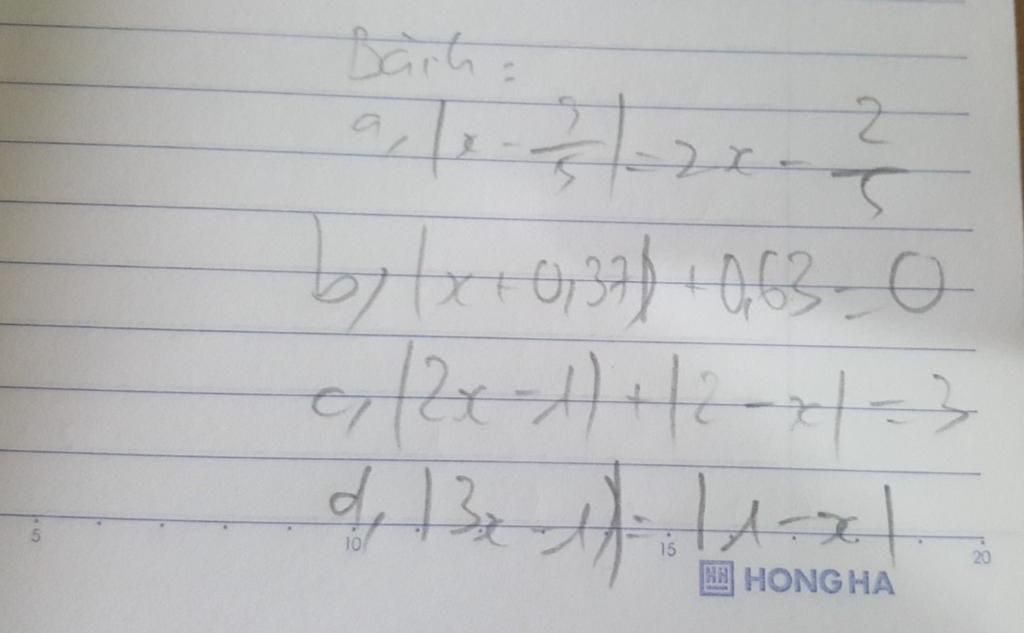 Bài 4:
a, |x - 3/5| = 2x - 2/5
b, |x + 0,37| + 0,63 = 0
c, |2x - 1| + |2 - x| = 3
d, |3x - 1| = |1 - x|
5 10 15 20
HONG HA